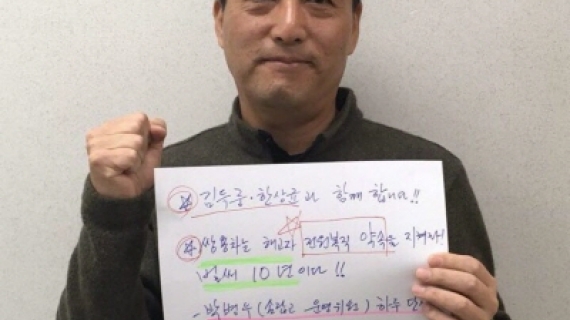 김득중·한상균과 함께 합니다!!
쌍용차는 해고자 전원복직 약속을 지켜라!
벌써 10년이다!!
-박병우( 운영위원) 하루 단